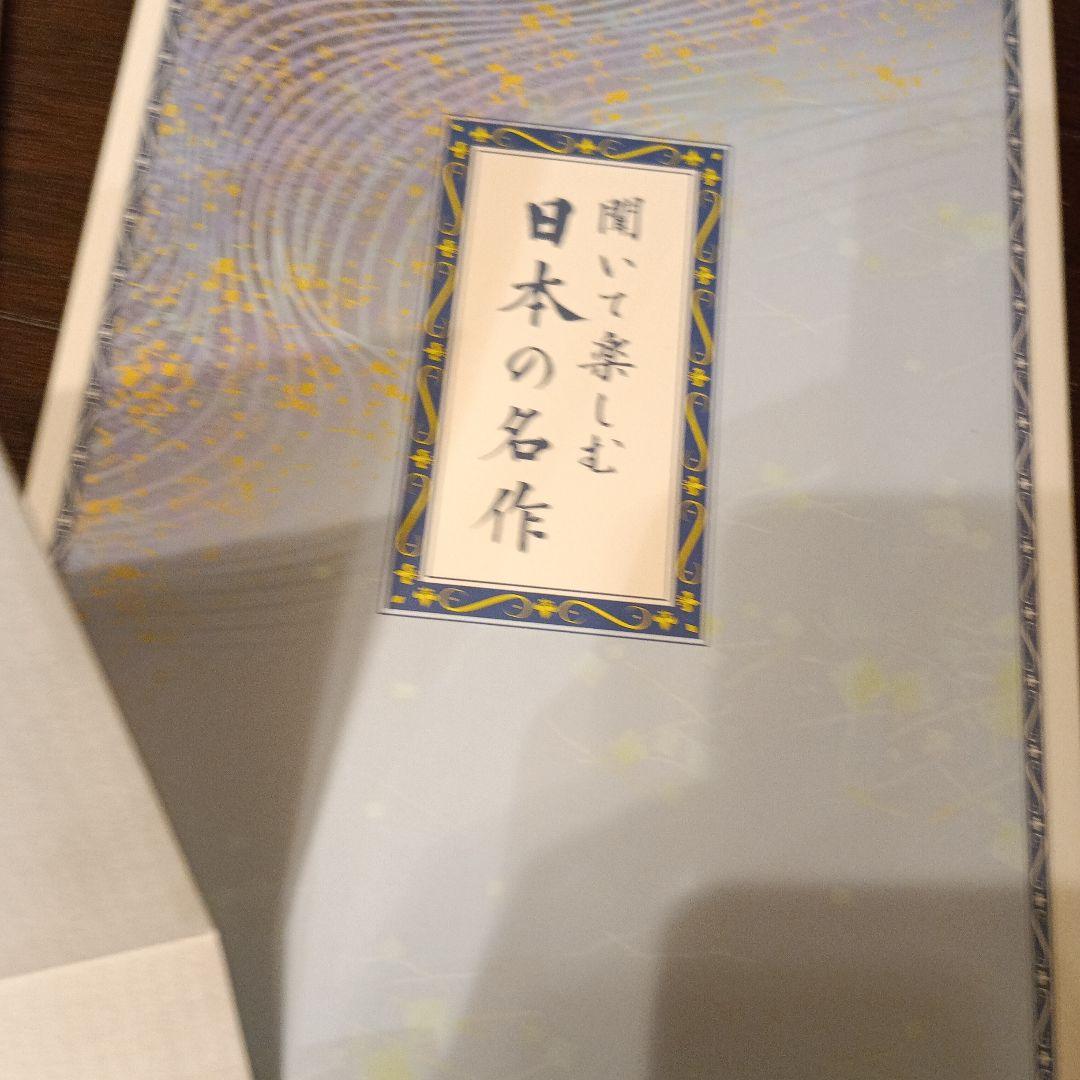 聞いて楽しむ
日本の名作